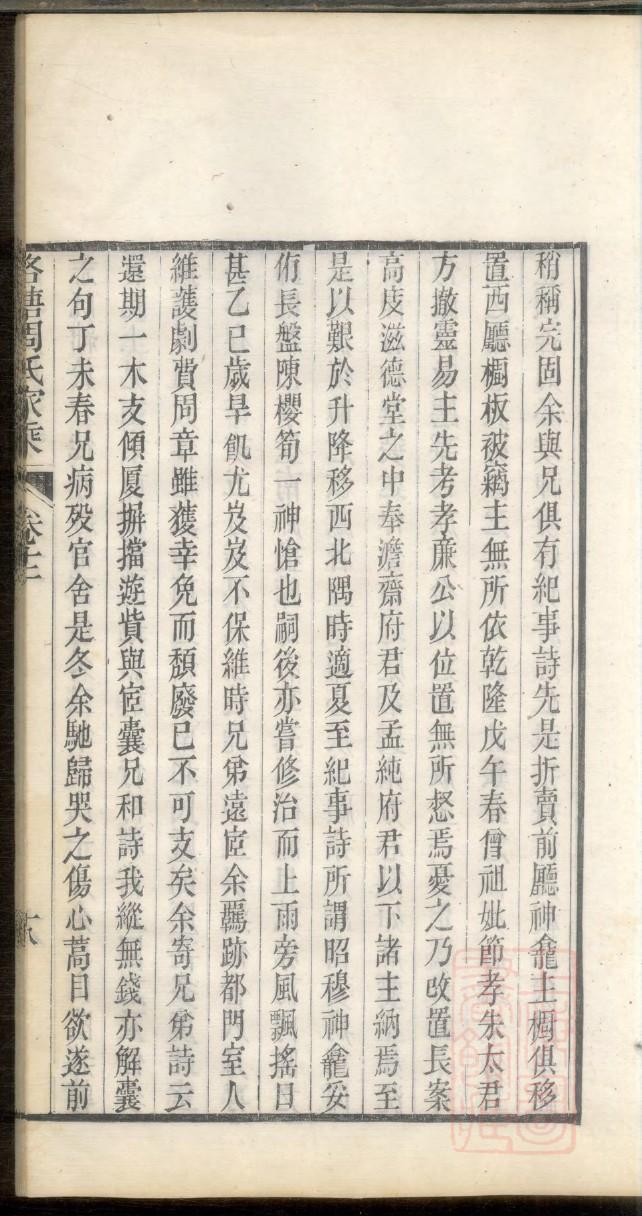 稍稱完固余與兄俱有紀事詩先是折賣前廳神龕主櫥俱移
置西廳櫥板被竊主無所依乾隆戊午春僧祖妣節孝朱太君
方撤靈易主先考孝亷公以位置無所惄焉憂之乃改置長案
高庋滋德堂之中奉澹齋府君及孟純府君以下諸主納焉至
是以艱於升降移西北隅時適夏至紀事詩所謂昭穆神龕妥
侑長盤陳櫻筍一神愴也嗣後亦嘗修治而上雨旁風飄搖日
甚乙巳歲旱飢尤岌岌不保維時兄弟遠宦余羈跡都門室人
維護劇費周章雖獲幸免而頹廢已不可支矣余寄兄弟詩云
還期一木支傾厦摒擋遊貲與宦囊兄和詩我縱無錢亦解囊
之句丁未春兄病殁官舍是冬余馳歸哭之傷心蒿目欲遂前
周氏家乘 卷十二 十八